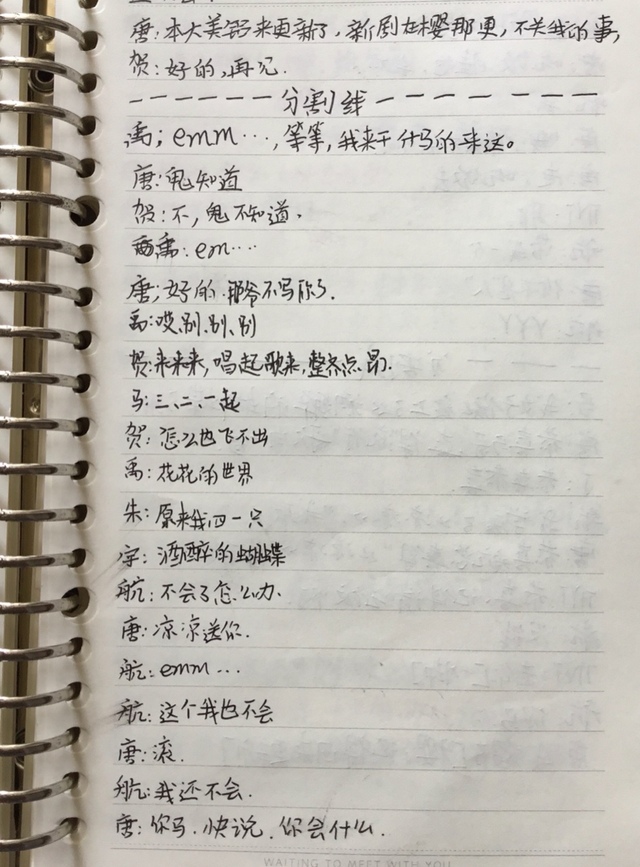 唐:本大美铝来更新了,新剧在樱那更,不关我的事,
贺:好的,再见.
------分割线------
禹;emm···,等等,我来干什马的来这。
唐:鬼知道
贺:不,鬼不知道.
禹:em····
唐;好的.那爷不写你了.
禹:哎,别、别、别
贺:来来来,唱起歌来,整齐点昂.
马:三、二、一起
贺:怎么也飞不出
禹:花花的世界
朱:原来我四一只
字:酒醉的蝴蝶
航:不会了怎么办.
唐:凉凉送你.
航:emm···
航:这个我也不会
唐:滚.
航:我还不会.
唐:你马.快说.你会什么.
WAITING TO MEET WITH YOU